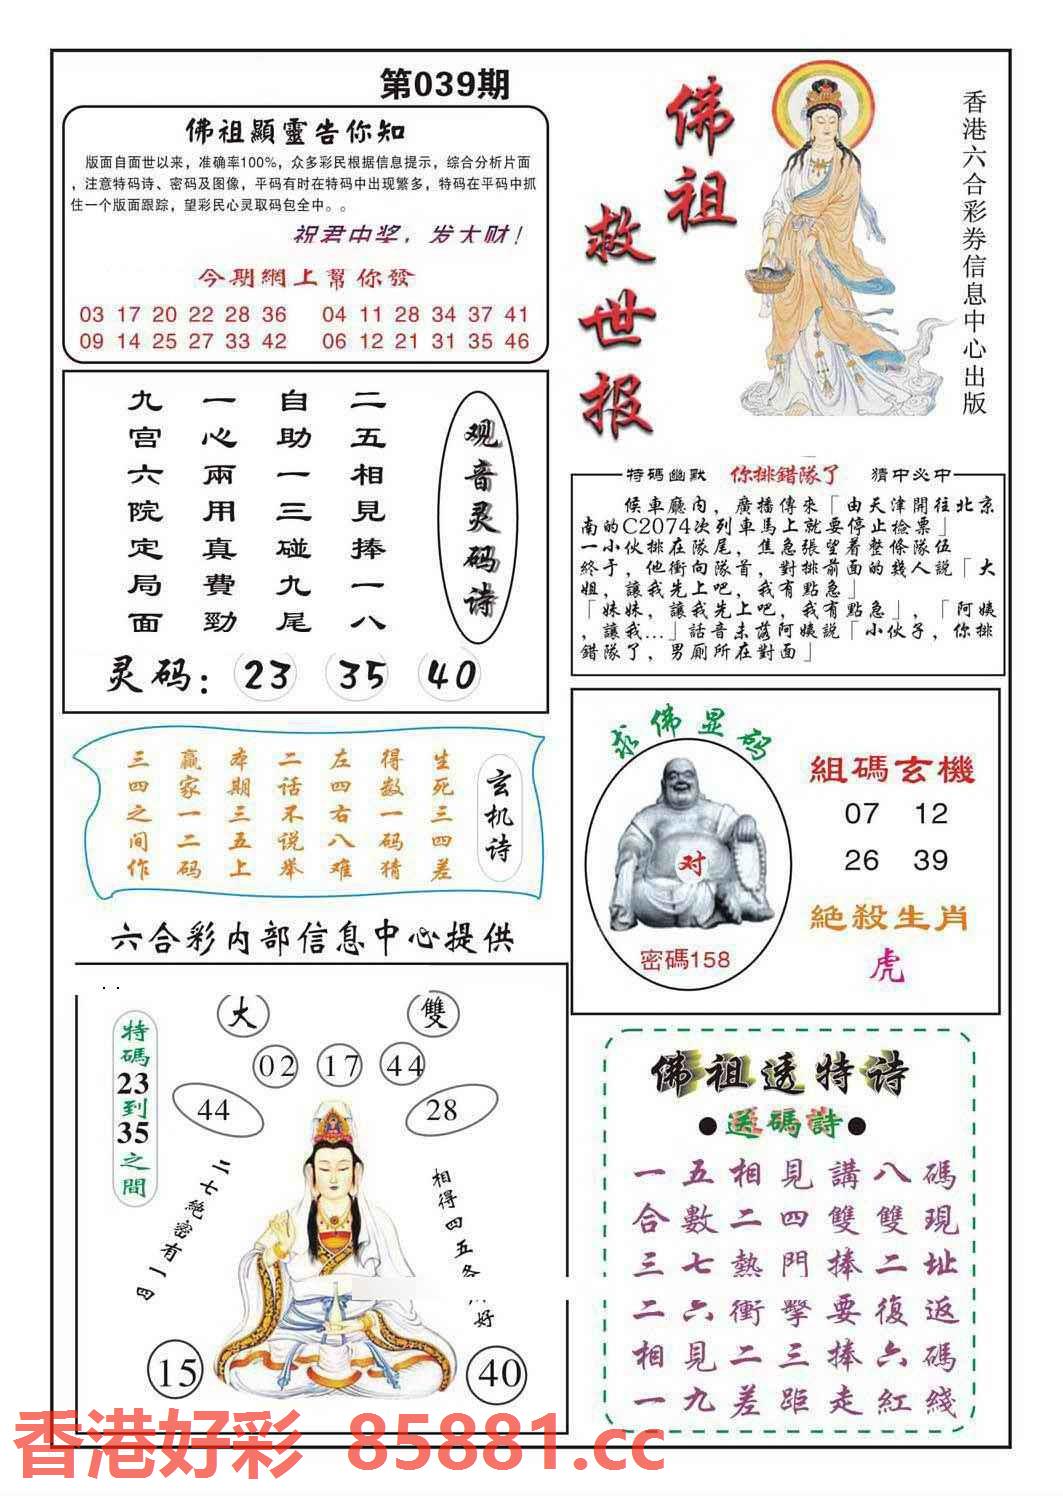 第039期
佛祖顯靈告你知
版面自面世以来，准确率100%，众多彩民根据信息提示，综合分析片面
，注意特码诗、密码及图像，平码有时在特码中出现繁多，特码在平码中抓
住一个版面跟踪，望彩民心灵取码包全中。。
祝君中奖，发大财！
今期網上幫你發
03 17 20 22 28 36 04 11 28 34 37 41
09 14 25 27 33 42 06 12 21 31 35 46
佛祖
救世报
香港六合彩券信息中心出版
观音灵码诗
二五相見捧一八
自助一三碰九尾
一心兩用真費勁
九宫六院定局面
灵码：23 35 40
特碼幽默 你排錯隊了 猜中必中
侯車廳内，廣播傳來「由天津開往北京
南的C2074次列車馬上就要停止檢票」
一小伙排在隊尾，焦急張望着整條隊伍
終于，他衝向隊首，對排前面的幾人説「大
姐，讓我先上吧，我有點急」
「妹妹，讓我先上吧，我有點急」，「阿姨
，讓我...」話音未落阿姨説「小伙子，你排
錯隊了，男厠所在對面」
玄机诗
生死三四差
得数一码猜
左四右八难
二话不说举
本期三五上
赢家一二码
三四之间作
求佛显码
对
密碼158
組碼玄機
07 12
26 39
絕殺生肖
虎
六合彩内部信息中心提供
大 雙
02 17 44
44 28
特碼23到35之間
二七絕密有一四
相得四五各
好
15 40
佛祖透特诗
●送碼詩●
一五相見講八碼
合數二四雙雙現
三七熱門捧二址
二六衝擊要復返
相見二三捧六碼
一九差距走紅綫
香港好彩 85881.cc